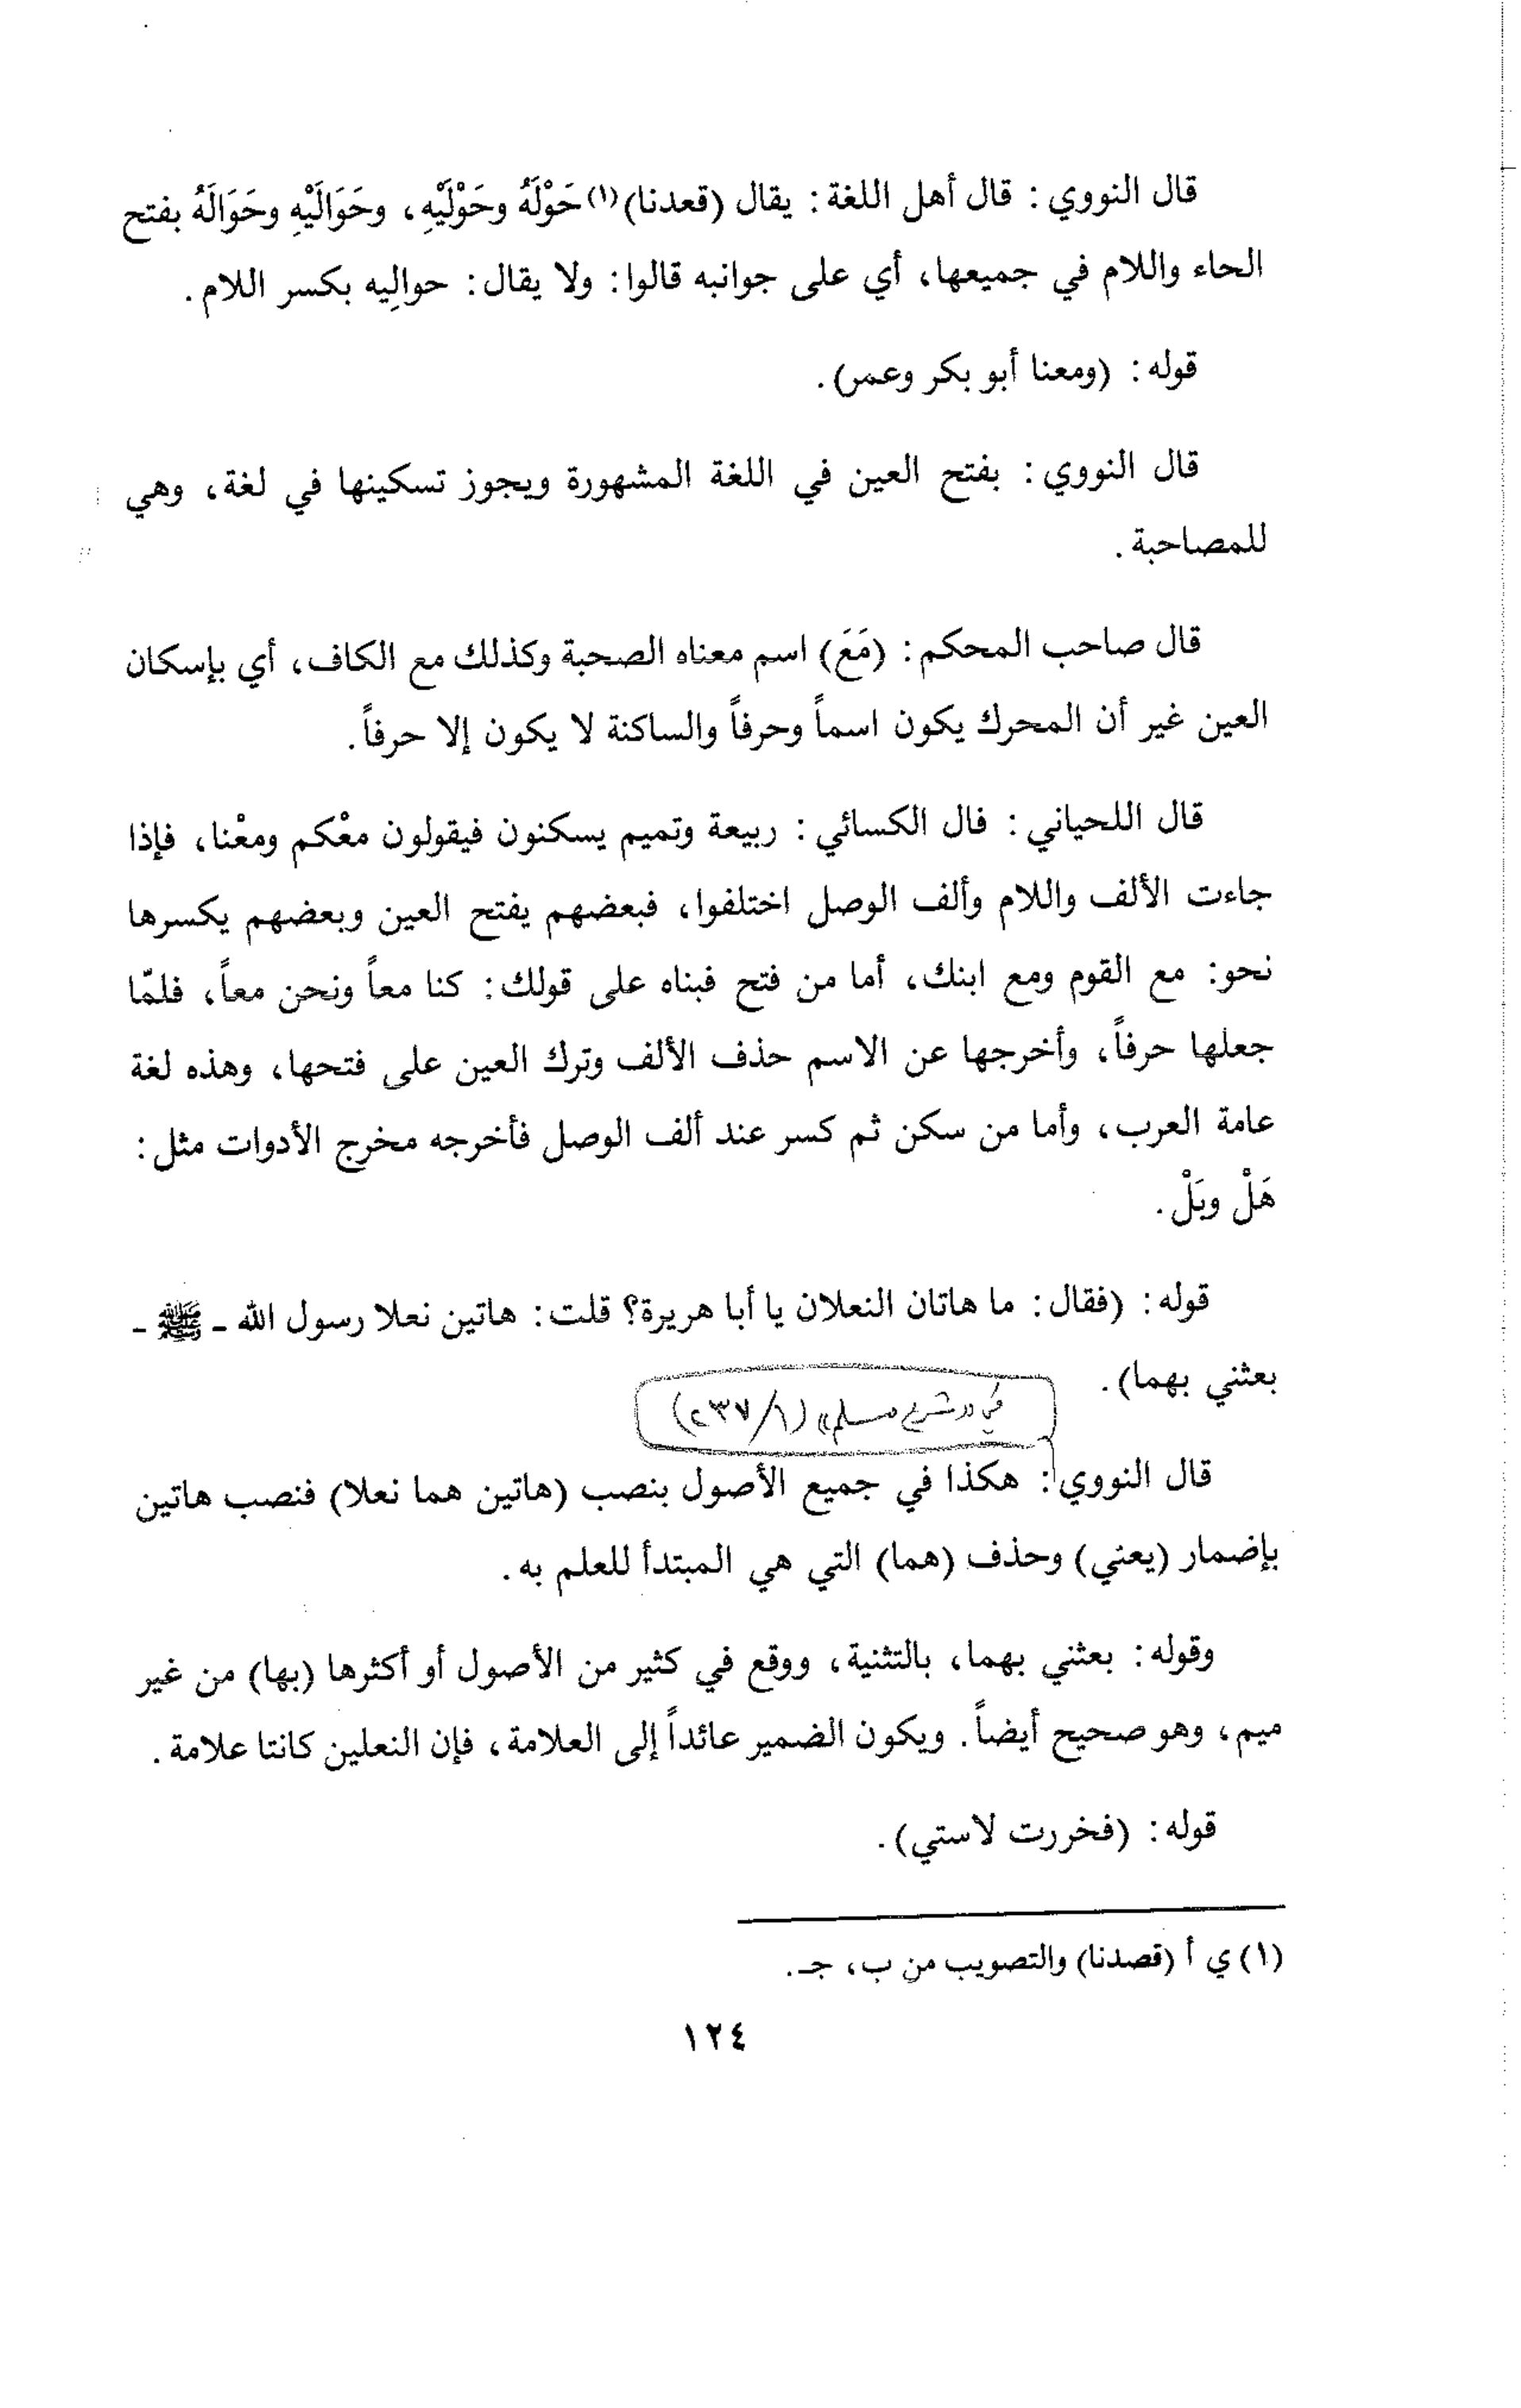 قال النووي : قال أهل اللغة : يقال (قعدنا)(١) حَوْلَهُ وحَوْلَيْهِ، وحَوَالَيْهِ وحَوَالَهُ بفتح
الحاء واللام في جميعها، أي على جوانبه قالوا : ولا يقال : حوالِيه بكسر اللام .
قوله : (ومعنا أبو بكر وعمر) .
قال النووي : بفتح العين في اللغة المشهورة ويجوز تسكينها في لغة، وهي
للمصاحبة .
قال صاحب المحكم : (مَعَ) اسم معناه الصحبة وكذلك مع الكاف، أي بإسكان
العين غير أن المحرك يكون اسماً وحرفاً والساكنة لا يكون إلا حرفاً .
قال اللحياني : فال الكسائي : ربيعة وتميم يسكنون فيقولون معْكم ومعْنا، فإذا
جاءت الألف واللام وألف الوصل اختلفوا، فبعضهم يفتح العين وبعضهم يكسرها
نحو: مع القوم ومع ابنك، أما من فتح فبناه على قولك: كنا معاً ونحن معاً، فلمّا
جعلها حرفاً، وأخرجها عن الاسم حذف الألف وترك العين على فتحها، وهذه لغة
عامة العرب، وأما من سكن ثم كسر عند ألف الوصل فأخرجه مخرج الأدوات مثل :
هَلْ وبَلْ .
قوله : (فقال : ما هاتان النعلان يا أبا هريرة؟ قلت : هاتين نعلا رسول الله - ﷺ -
بعثني بهما) .
في «شرح مسلم» (١/٢٣٧)
قال النووي : هكذا في جميع الأصول بنصب (هاتين هما نعلا) فنصب هاتين
بإضمار (يعني) وحذف (هما) التي هي المبتدأ للعلم به .
وقوله : بعثني بهما، بالتثنية، ووقع في كثير من الأصول أو أكثرها (بها) من غير
ميم، وهو صحيح أيضاً. ويكون الضمير عائداً إلى العلامة، فإن النعلين كانتا علامة .
قوله : (فخررت لاستي) .
(١) ي أ (قصدنا) والتصويب من ب، جـ.
١٢٤